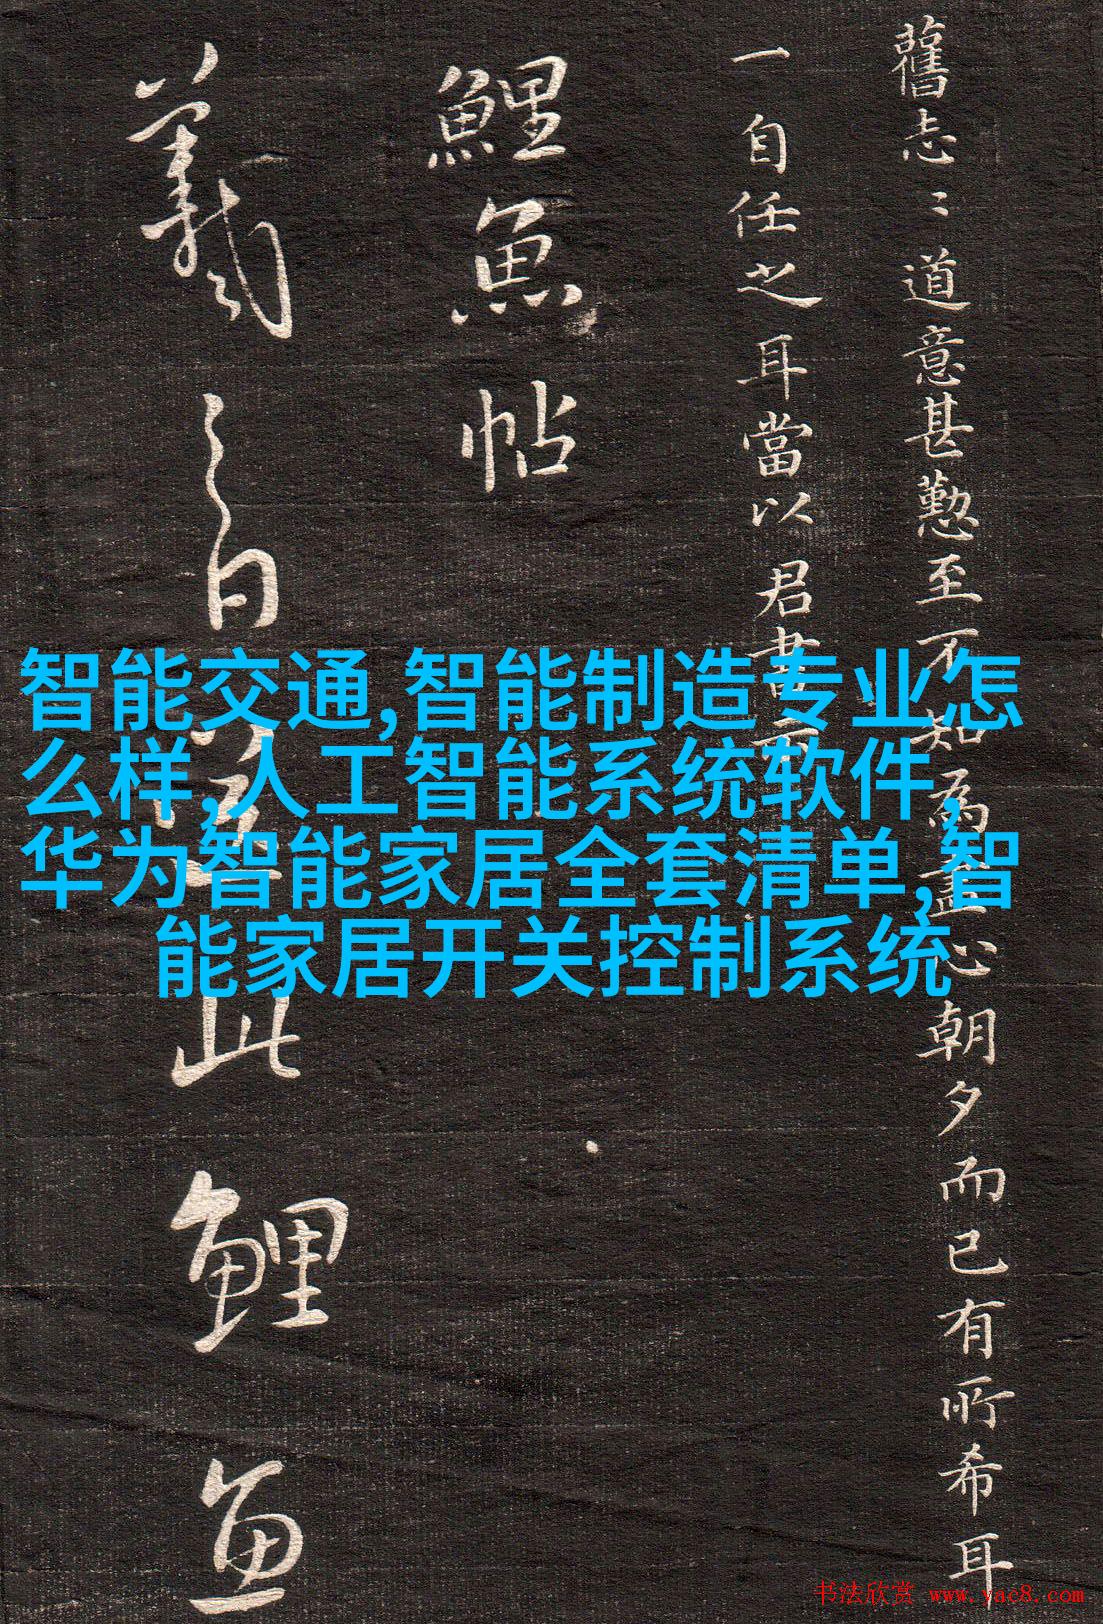 舊志〻道意甚懃至不知為盡心朝夕而已有所希耳
一自任之耳當以君書示
鯉魚帖
羲之白送此鯉魚
智能交通,智能制造专业怎
么样,人工智能系统软件,
华为智能家居全套清单,智
能家居开关控制系统
书法欣赏 www.yac8.com